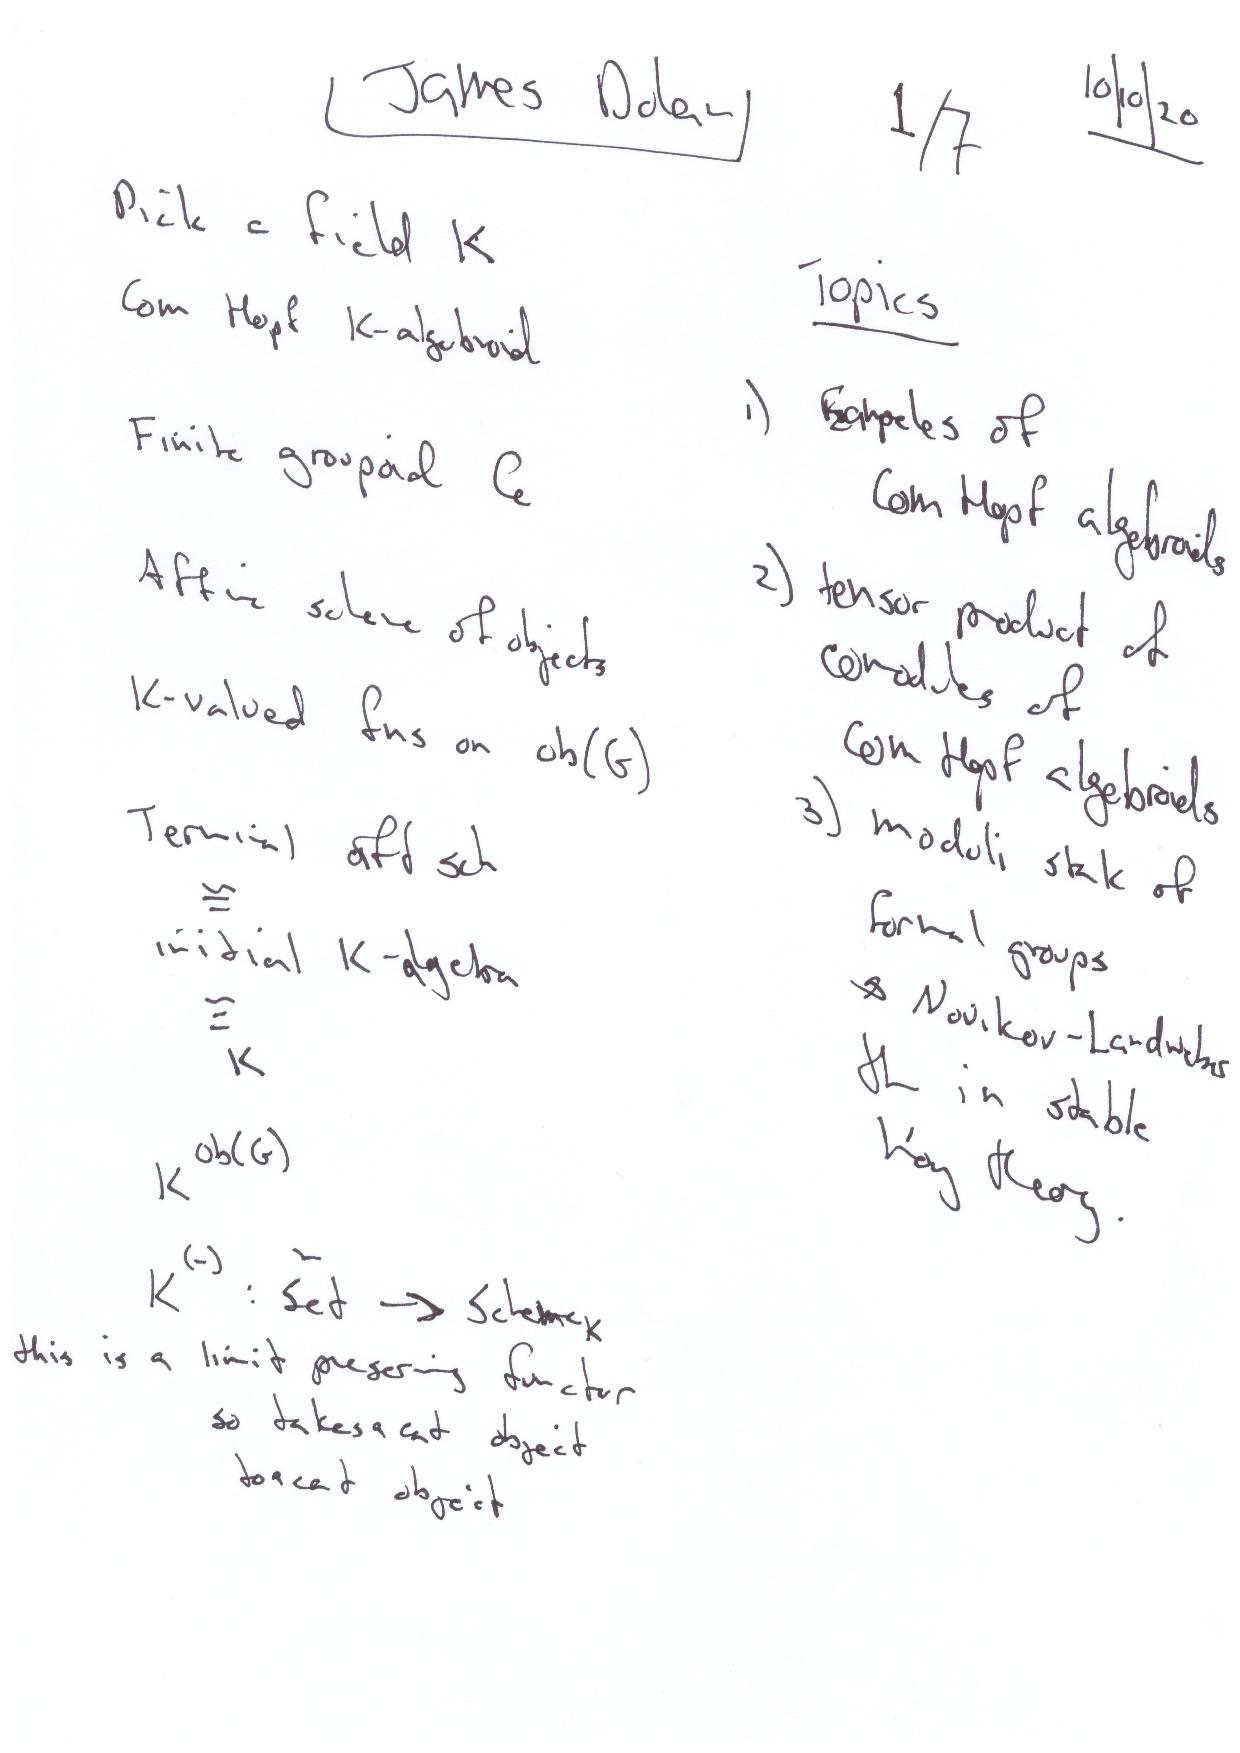 James Dolan
1/7
10/10/20
Pick a field K
Com Hopf K-algebroid
Finite groupoid G
Affine scheme of objects
K-valued fns on ob(G)
Terminal aff sch
≅
initial K-algebra
≅
K
K^ob(G)
K^(-) : Set → Scheme_K
this is a limit preserving functor
so takes a cat object
to a cat object
Topics
1) Exampeles of
Com Hopf algebroids
2) tensor product of
comodules of
Com Hopf algebroids
3) moduli stak of
formal groups
* Novikov-Landweber
th in stable
h'opy theory.